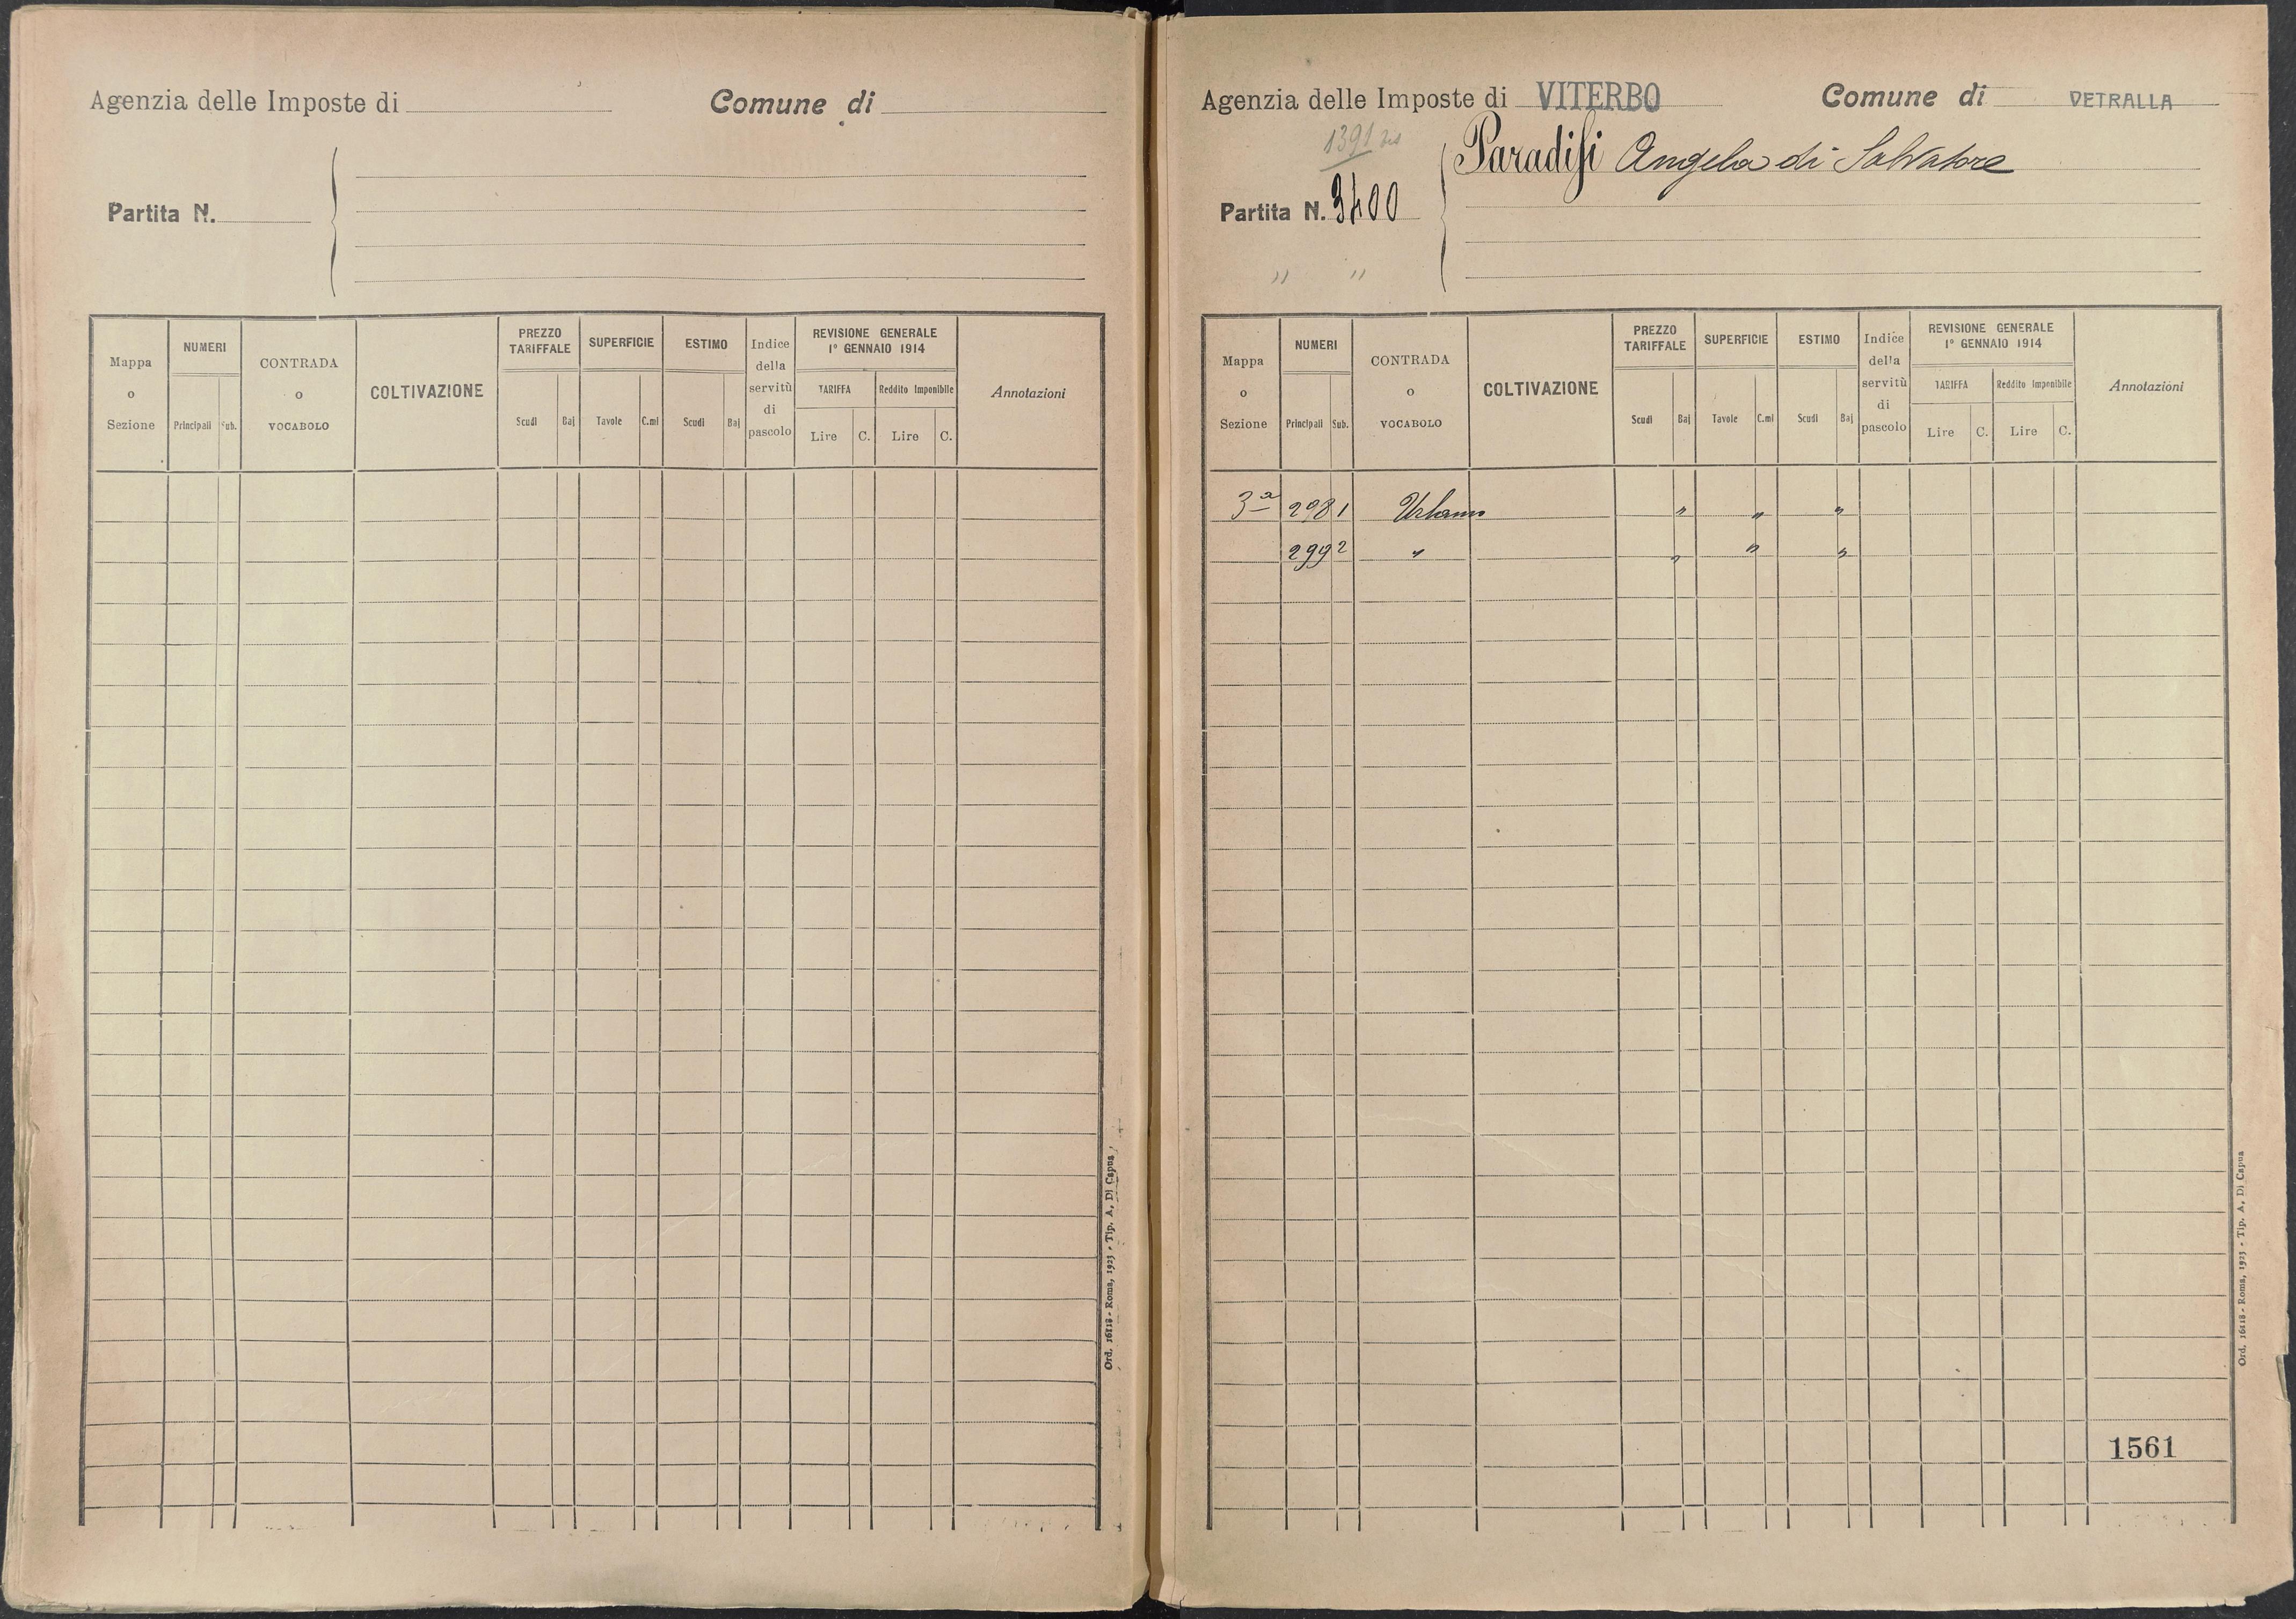 Agenzia delle Imposte di
Comune di
Partita N.
Mappa o Sezione
NUMERI
Principali
Sub.
CONTRADA o VOCABOLO
COLTIVAZIONE
PREZZO TARIFFALE
Scudi
Baj
SUPERFICIE
Tavole
C.mi
ESTIMO
Scudi
Baj
Indice della servitù di pascolo
REVISIONE GENERALE
1° GENNAIO 1914
TARIFFA
Lire
C.
Reddito Imponibile
Lire
C.
Annotazioni
Ord. 16118 - Roma, 1923 - Tip. A. Di Capua
Agenzia delle Imposte di VITERBO
Comune di VETRALLA
1391 bis
Paradisi Angela di Salvatore
Partita N. 3400
" "
Mappa o Sezione
NUMERI
Principali
Sub.
CONTRADA o VOCABOLO
COLTIVAZIONE
PREZZO TARIFFALE
Scudi
Baj
SUPERFICIE
Tavole
C.mi
ESTIMO
Scudi
Baj
Indice della servitù di pascolo
REVISIONE GENERALE
1° GENNAIO 1914
TARIFFA
Lire
C.
Reddito Imponibile
Lire
C.
Annotazioni
3ª 298 1 Urbano " " "
299 2 " " " "
1561
Ord. 16118 - Roma, 1923 - Tip. A. Di Capua